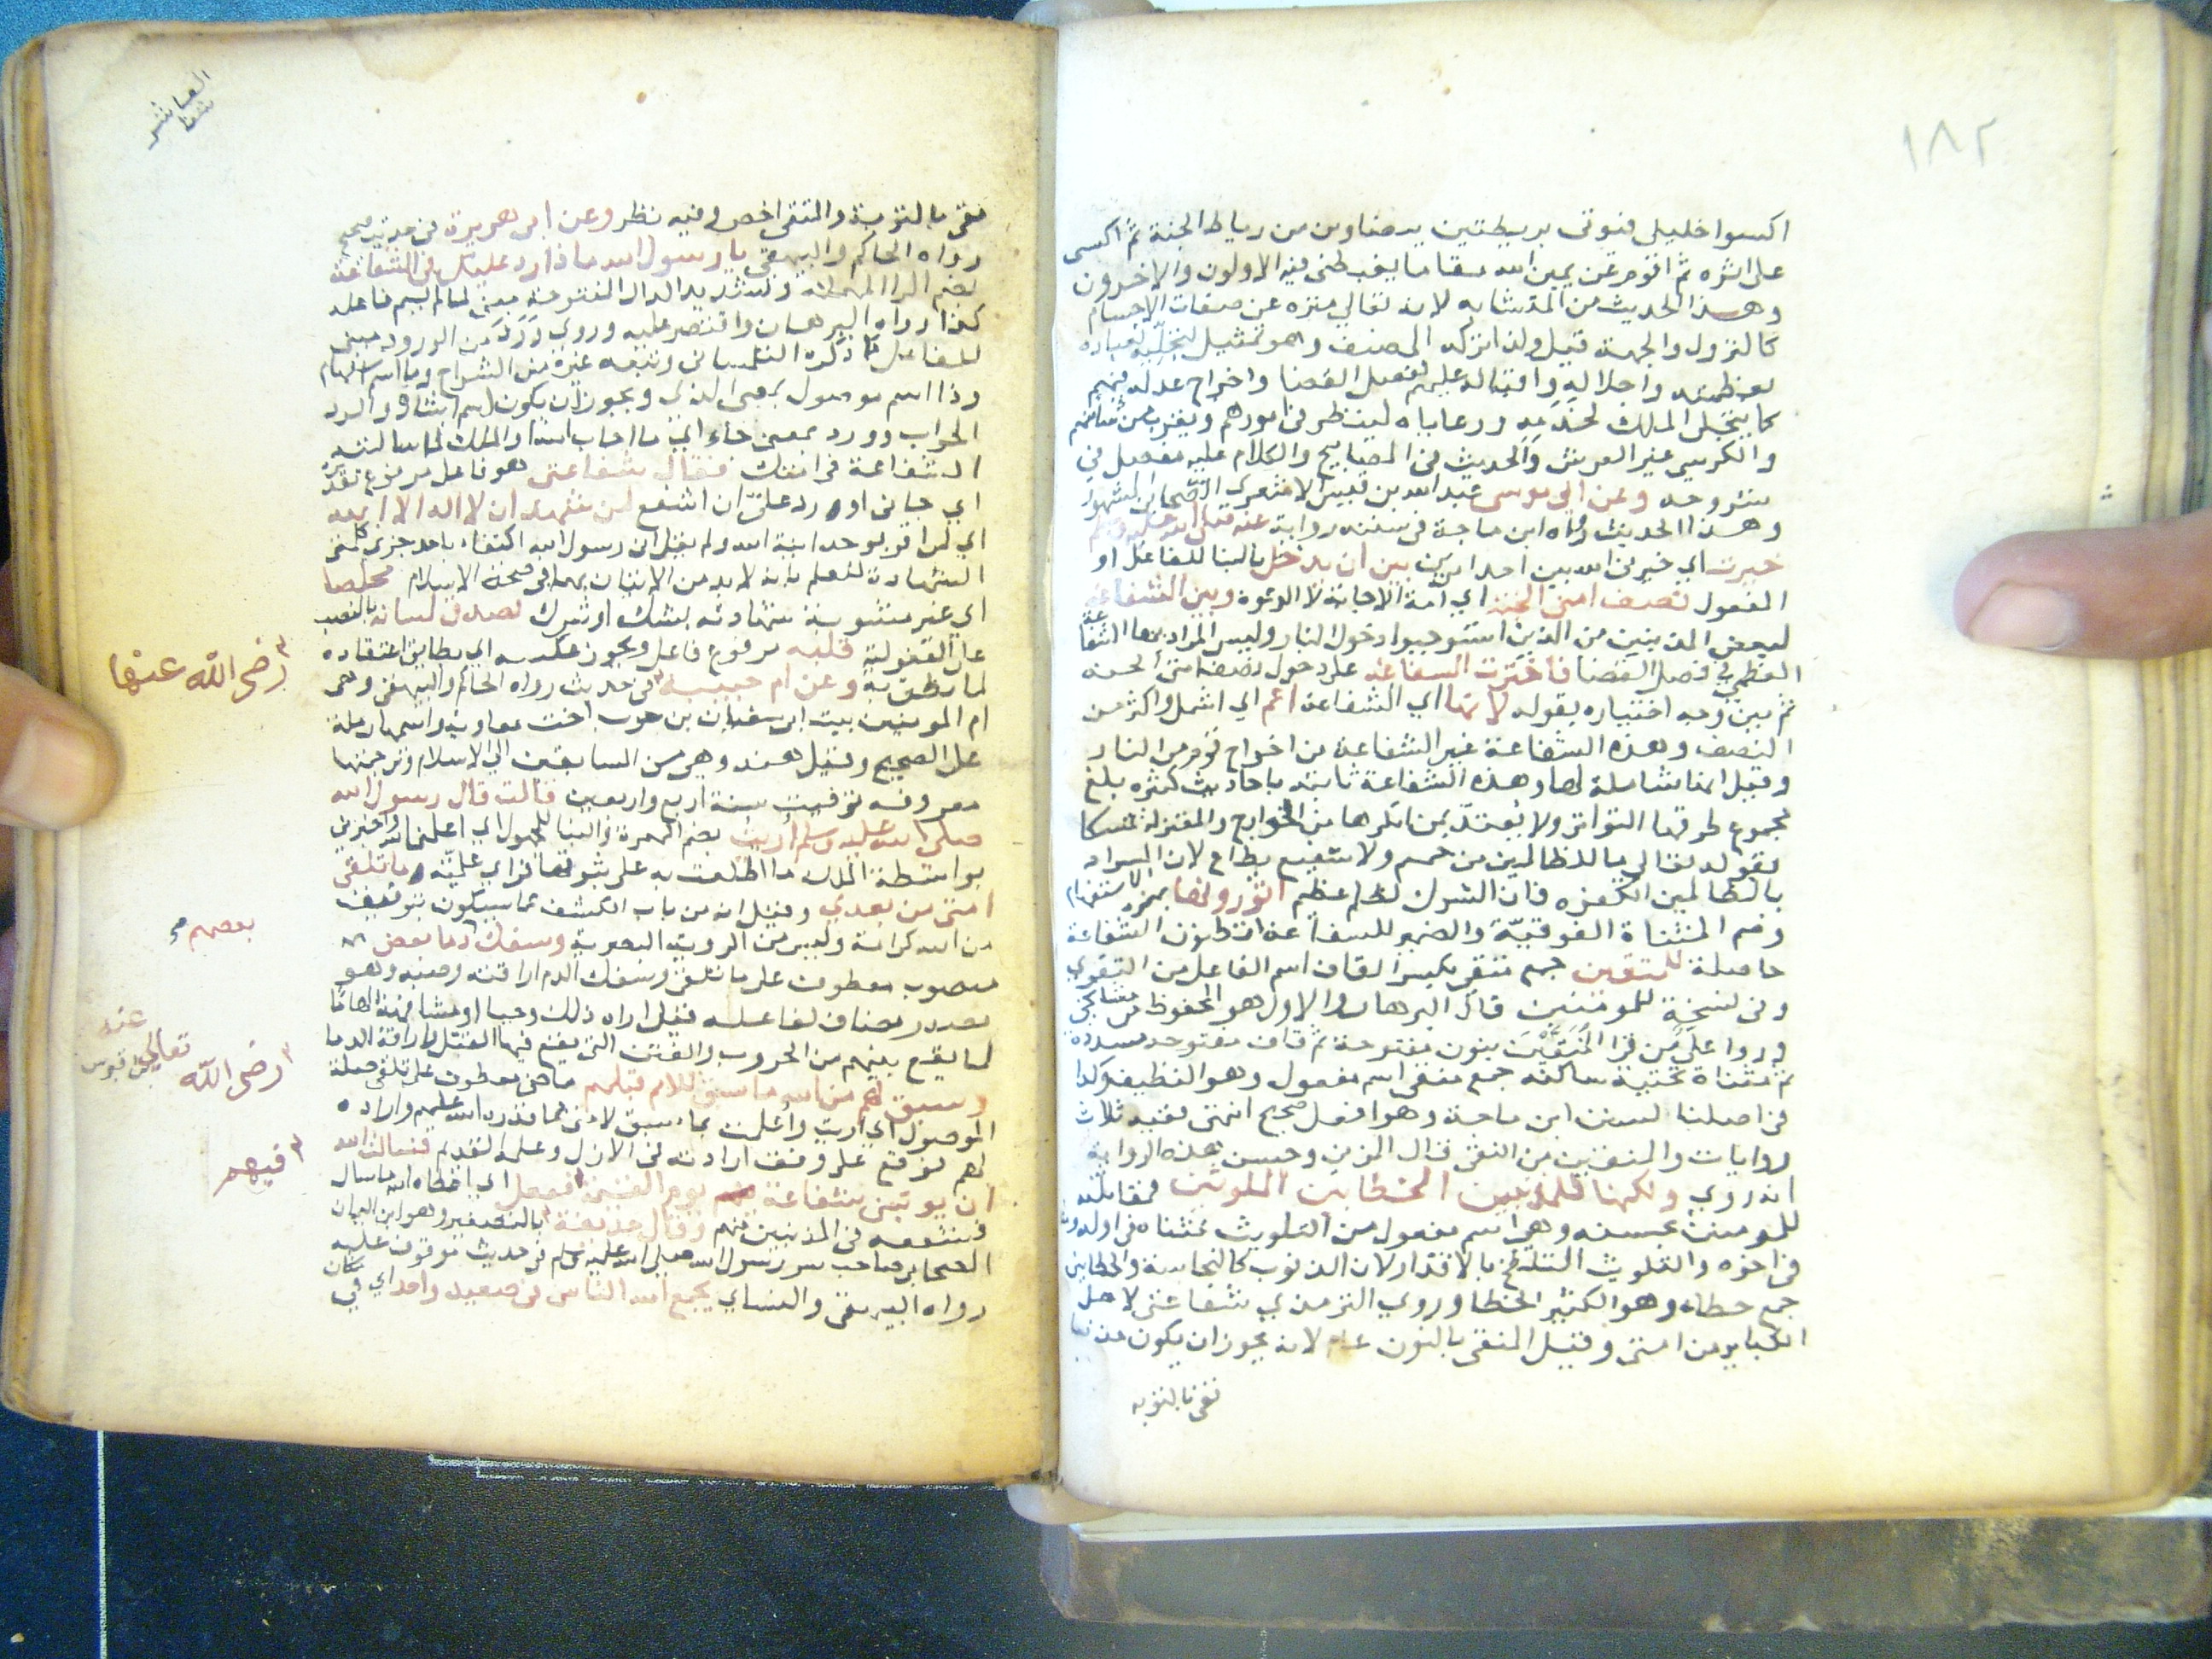 ١٨٢
اكسوا خليلى فيؤتى بريطتين بيضاوين من رياط الجنة ثم اكسى
على اثره ثم اقوم عن يمين الله مقاما يغبطنى فيه الاولون والاخرون
وهذا الحديث من المتشابه لانه تعالى منزه عن صفات الاجسام
كالنزول والجهة قيل ولذا تركه المصنف وهو تمثيل لتجليه لعباده
بعظمته واجلاله واقباله عليهم لفصل القضا واخراج عدله فيهم
كما يتجلى الملك لخدمه ورعاياه لينظر فى امورهم ويقرب من شا منهم
والكرسى غير العرش والحديث فى المصابيح والكلام عليه مفصل فى
شروحه وعن ابى موسى عبد الله بن قيس الاشعرى الصحابى المشهور
وهذا الحديث رواه ابن ماجة فى سننه رواية عنه صلى الله عليه وسلم
خيرت اى خيرنى الله بين احد امرين بين ان يدخل بالبنا للفاعل او
المفعول نصف امتى الجنة اى امة الاجابة لا الدعوة وبين الشفاعة
لبعض المذنبين من الذين استوجبوا دخول النار وليس المراد بها الشفاعة
العظمى فى فصل القضا فاخترت الشفاعة على دخول نصف امتى الجنة
ثم بين وجه اختياره بقوله لانها اى الشفاعة اعم اى اشمل واكثر من
النصف وهذه الشفاعة غير الشفاعة من اخراج قوم من النار
وقيل انها شاملة لها وهذه الشفاعة ثابتة باحاديث كثيره بلغ
مجموع طرقها التواتر ولا يعتد بمن انكرها من الخوارج والمعتزلة تمسكا
بقوله تعالى ما للظالمين من حميم ولا شفيع يطاع لان المراد
بالظالمين الكفره فان الشرك لظلم عظيم اترونها بهمزة الاستفهام
وضم المثناة الفوقية والضمير للشفاعة اتظنون الشفاعة
حاصلة للمتقين جمع متقى بكسر القاف اسم الفاعل من التقوى
وفى نسخة للمومنين قال البرهان والاول هو المحفوظ من مشايخى
وروا على من قرا المنقين بنون مفتوحة ثم قاف مفتوحه مشددة
ثم مثناة تحتية ساكنة جمع منقى اسم مفعول وهو النظيف وكذا
فى اصلنا لسنن ابن ماجة وهو افعل صحيح انتهى ففيه ثلاث
روايات والمنقين من النقى قال المزى وحسن هذه الرواية
انه روى ولكنها للمذنبين الخطاين الملوثين فمقابلته
للمومنين بحسنه وهو اسم مفعول من التلويث بمثناة فى اوله
فى اخره والتلويث التلطخ بالاقذار لان الذنوب كالنجاسة والخطاين
جمع خطاء وهو الكثير الخطا وروى الترمذى شفاعتى لاهل
الكباير من امتى وقيل المنقى بالنون عام لانه يجوز ان يكون مذنبا
نقى بالتوبه
العاشر
نقى بالتوبة والمتقى اخص وفيه نظر وعن ابى هريرة فى حديث صحيح
رواه الحاكم والبيهقى يا رسول الله ماذا رد عليك فى الشفاعة
بضم الرا المهملة وتشديد الدال المفتوحة مبنى لما لم يسم فاعله
كذا رواه البرهان واقتصر عليه وروى ورد من الورود مبنى
للفاعل كما ذكره التلمسانى وتبعه غيره من الشراح وما اسم استفهام
وذا اسم موصول بمعنى الذى ويجوز ان يكون اسم اشارة والرد
الجواب وورد بمعنى جاء اى ما اجاب الله او الملك لما سالته
الشفاعة فى امتك فقال شفاعتى هو فاعل مرفوع تقديره
اى جانى او رد على ان اشفع لمن شهد ان لا اله الا الله
اى لمن اقر بوحدانية الله ولم يقل ان رسول الله اكتفاء باحد جزى كلمتى
الشهادة للعلم بانه لا بد من الاتيان بهما فى صحة الاسلام مخلصا
اى غير مشوبة شهادته بشك او شرك يصدق لسانه بالنصب
على المفعولية قلبه مرفوع فاعل ويجوز عكسه اى يطابق اعتقاده
لما نطق به وعن ام حبيبة فى حديث رواه الحاكم والبيهقى وهى
رضى الله عنها
ام المومنين بيت ابى سفيان بن حرب اخت معاوية واسمها رملة
على الصحيح وقيل هند وهى من السابقين الى الاسلام وترجمتها
معروفه توفيت سنة اربع واربعين قالت قال رسول الله
صلى الله عليه وسلم اريت بضم الهمزة والبنا للمجهول اى اعلمنى الله واخبرنى
بواسطة الملك ما اطلعت به على شوتها فراى علية ما تلقى
امتى من بعدى وقيل انه من باب الكشف عما سيكون بتوقيف
من الله كرامة وليس من الروية البصرية وسفك دما بعض
بعضهم
منصوب معطوف على ما تلقى وسفك الدم اراقته وصبه وهو
مصدر مضاف لفاعله فقيل اراه ذلك وحيا او مشافهة الهاما
لما يقع بينهم من الحروب والفتن التى يقع فيها القتل واراقة الدما
وسبق لهم من الله ما سبق للامم قبلهم ما هى معطوف على تلقى صلة
الموصول اى اريت واعلمت بما سبق لامتى مما قدره الله عليهم واراده
لهم فوقع على وفق ارادته فى الازل وعلمه القديم فسالت الله
ان يوتينى شفاعة يوم القيمة ففعل اى اعطاه الله ما سال
فيهم
فشفعه فى المذنبين منهم وقال حذيفة بالتصغير وهو ابن اليمان
رضى الله تعالى عنه
الصحابى صاحب سر رسول الله صلى الله عليه وسلم فى حديث موقوف عليه
رواه البيهقى والنساى يجمع الله الناس فى صعيد واحد اى فى مكان